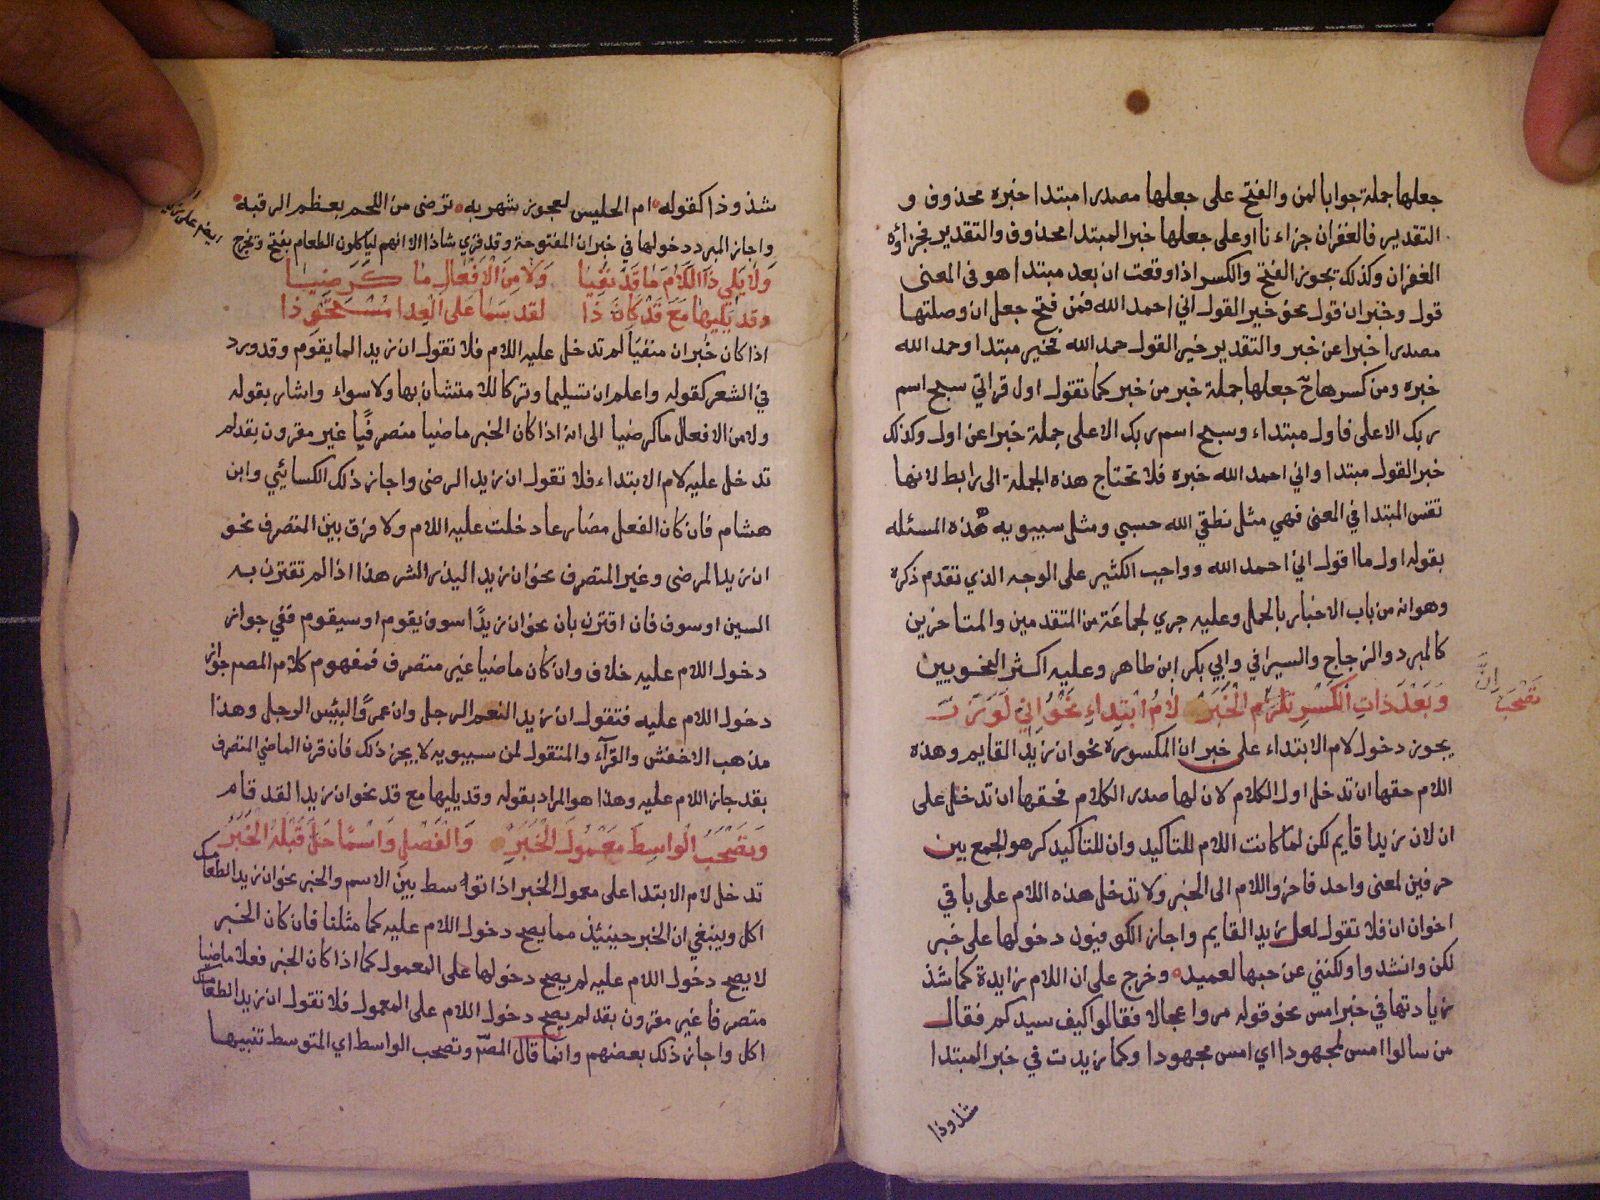 جعلها جملة جوابا لمن والفتح على جعلها مصدرا مبتدا خبره محذوف و
التقدير فالغفران جزاءه او على جعلها خبر المبتدا محذوف والتقدير فجزاؤه
الغفران وكذلك يجوز الفتح والكسر اذا وقعت ان بعد مبتدا هو في المعنى
قول وخبر ان قول نحو خير القول اني احمد الله فمن فتح جعل ان وصلتها
مصدرا خبرا عن خير والتقدير خير القول حمد الله فخير مبتدا وحمد الله
خبره ومن كسرها جعلها جملة خبر من خير كما تقول اول قراتي سبح اسم
ربك الاعلى فاول مبتداء وسبح اسم ربك الاعلى جملة خبرا عن اول وكذلك
خير القول مبتدا واني احمد الله خبره فلا تحتاج هذه الجملة الى رابط لانها
نفس المبتدا في المعنى فهي مثل نطقي الله حسبي ومثل سيبويه هذه المسئله
بقوله اول ما اقول اني احمد الله وواجب الكثير على الوجه الذي تقدم ذكره
وهو انه من باب الاخبار بالجمل وعليه جري جماعة من المتقدمين والمتاخرين
كالمبرد والزجاج والسيرافي وابي بكر ابن طاهر وعليه اكثر النحويين
وَبَعْدَ ذاتِ الكَسْرِ تلزم الْخَبَرْ لامُ ابْتِداءٍ نَحْوُ اِنِّي لَوَزَرْ
تصحب اِنَّ
يجوز دخول لام الابتداء على خبر ان المكسورة نحو ان زيدا القايم وهذه
اللام حقها ان تدخل اول الكلام لان لها صدر الكلام فحقها ان تدخل على
ان لان زيدا قايم لكن لما كانت اللام للتاكيد وان للتاكيد كرهوا الجمع بين
حرفين لمعنى واحد فاخروا اللام الى الخبر ولا تدخل هذه اللام على باقي
اخوان ان فلا تقول لعل زيدا لقايم واجاز الكوفيون دخولها على خبر
لكن وانشدوا ولكنني عن حبها لعميد وخرج على ان اللام زايدة كما شذ
زيادتها في خبر امس نحو قوله مروا عجالا فقالوا كيف سيدكم فقال
من سالوا امس لمجهودا اي امس مجهودا وكما زيدت في خبر المبتدا
شذوذا
شذوذا كقوله ام الحليس لعجوز شهربه ترضى من اللحم بعظم الرقبه
واجاز المبرد دخولها في خبر ان المفتوحة وقد قري شاذا الا انهم لياكلون الطعام بفتح وتخرج
وَلا يَلِي ذِي اللَّامَ مَا قَدْ نُفِيا وَلا مِنَ الْاَفْعالِ مَا كَرَضِيا
وقد يَلِيها مَعَ قَدْ كَاِنَّ ذا لقد سَما عَلَى الْعِدا مُسْتَحْوِذا
اذا كان خبر ان منفيا لم تدخل عليه اللام فلا تقول ان زيدا لما يقوم وقد ورد
في الشعر كقوله واعلم ان تسليما وتركا للا متشابهان ولا سواء واشار بقوله
ولا من الافعال ما كرضيا الى انه اذا كان الخبر ماضيا متصرفا غير مقرون بقد لم
تدخل عليه لام الابتداء فلا تقول ان زيدا لرضى واجاز ذلك الكسائي وابن
هشام فان كان الفعل مضارعا دخلت عليه اللام ولا فرق بين المتصرف نحو
ان زيدا لمرضى وغير المتصرف نحو ان زيدا ليذر الشر هذا اذا لم تقترن به
السين او سوف فان اقترن بان نحو ان زيدًا سوف يقوم او سيقوم ففي جواز
دخول اللام عليه خلاف وان كان ماضيا غير متصرف فمفهوم كلام المصم جواز
دخول اللام عليه فتقول ان زيدا لنعم الرجل وان عمرًا لبئس الرجل وهذا
مذهب الاخفش والفرآء والمنقول لمن سيبويه لا يجز ذلك فان قرن الماضي المتصرف
بقد جاز اللام عليه وهذا هو المراد بقوله وقد يليها مع قد نحو ان زيدا لقد قام
وَتَصْحَبُ الْواسِطَ مَعْمُولَ الْخَبَرْ وَالْفَصْلَ وَاسْمًا حَلَّ قَبْلَهُ الْخَبَرْ
تدخل لام الابتدا على معمول الخبر اذا توسط بين الاسم والخبر نحو ان زيدا لطعامك
اكل وينبغي ان الخبر حينئذ مما يصح دخول اللام عليه كما مثلنا فان كان الخبر
لا يصح دخول اللام عليه لم يصح دخولها على المعمول كما اذا كان الخبر فعلا ماضيا
متصرفا غير مقرون بقد لم يصح دخول اللام على المعمول فلا تقول ان زيدا لطعامك
اكل واجاز ذلك بعضهم وانما قال المصّ وتصحب الواسط اي المتوسط تنبيها